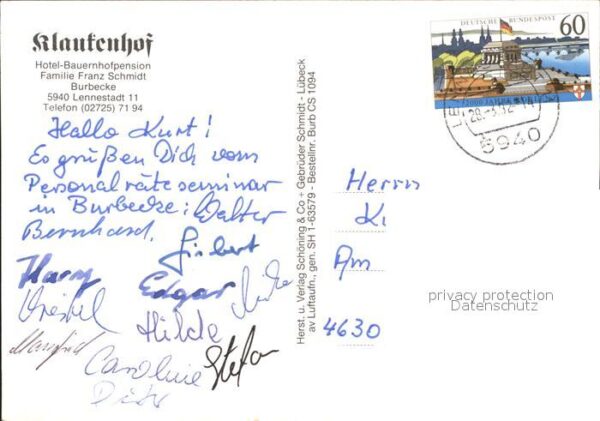 Klaukenhof
Hotel-Bauernhofpension
Familie Franz Schmidt
Burbecke
5940 Lennestadt 11
Telefon (02725) 71 94
Hallo Kurt!
Es grüßen Dich vom
Personalräteseminar
in Burbecke: Walter
Bernhard,
Harry
Edgar
Hilde
Manfred
Caroline
Stefan
Dieter
Herst. u. Verlag Schöning & Co + Gebrüder Schmidt - Lübeck
av Luftaufn., gen. SH 1-63579 - Bestellnr. Burb CS 1094
DEUTSCHE BUNDESPOST
60
2000 JAHRE
5940
Herrn
K.
Am
4630
privacy protection
Datenschutz